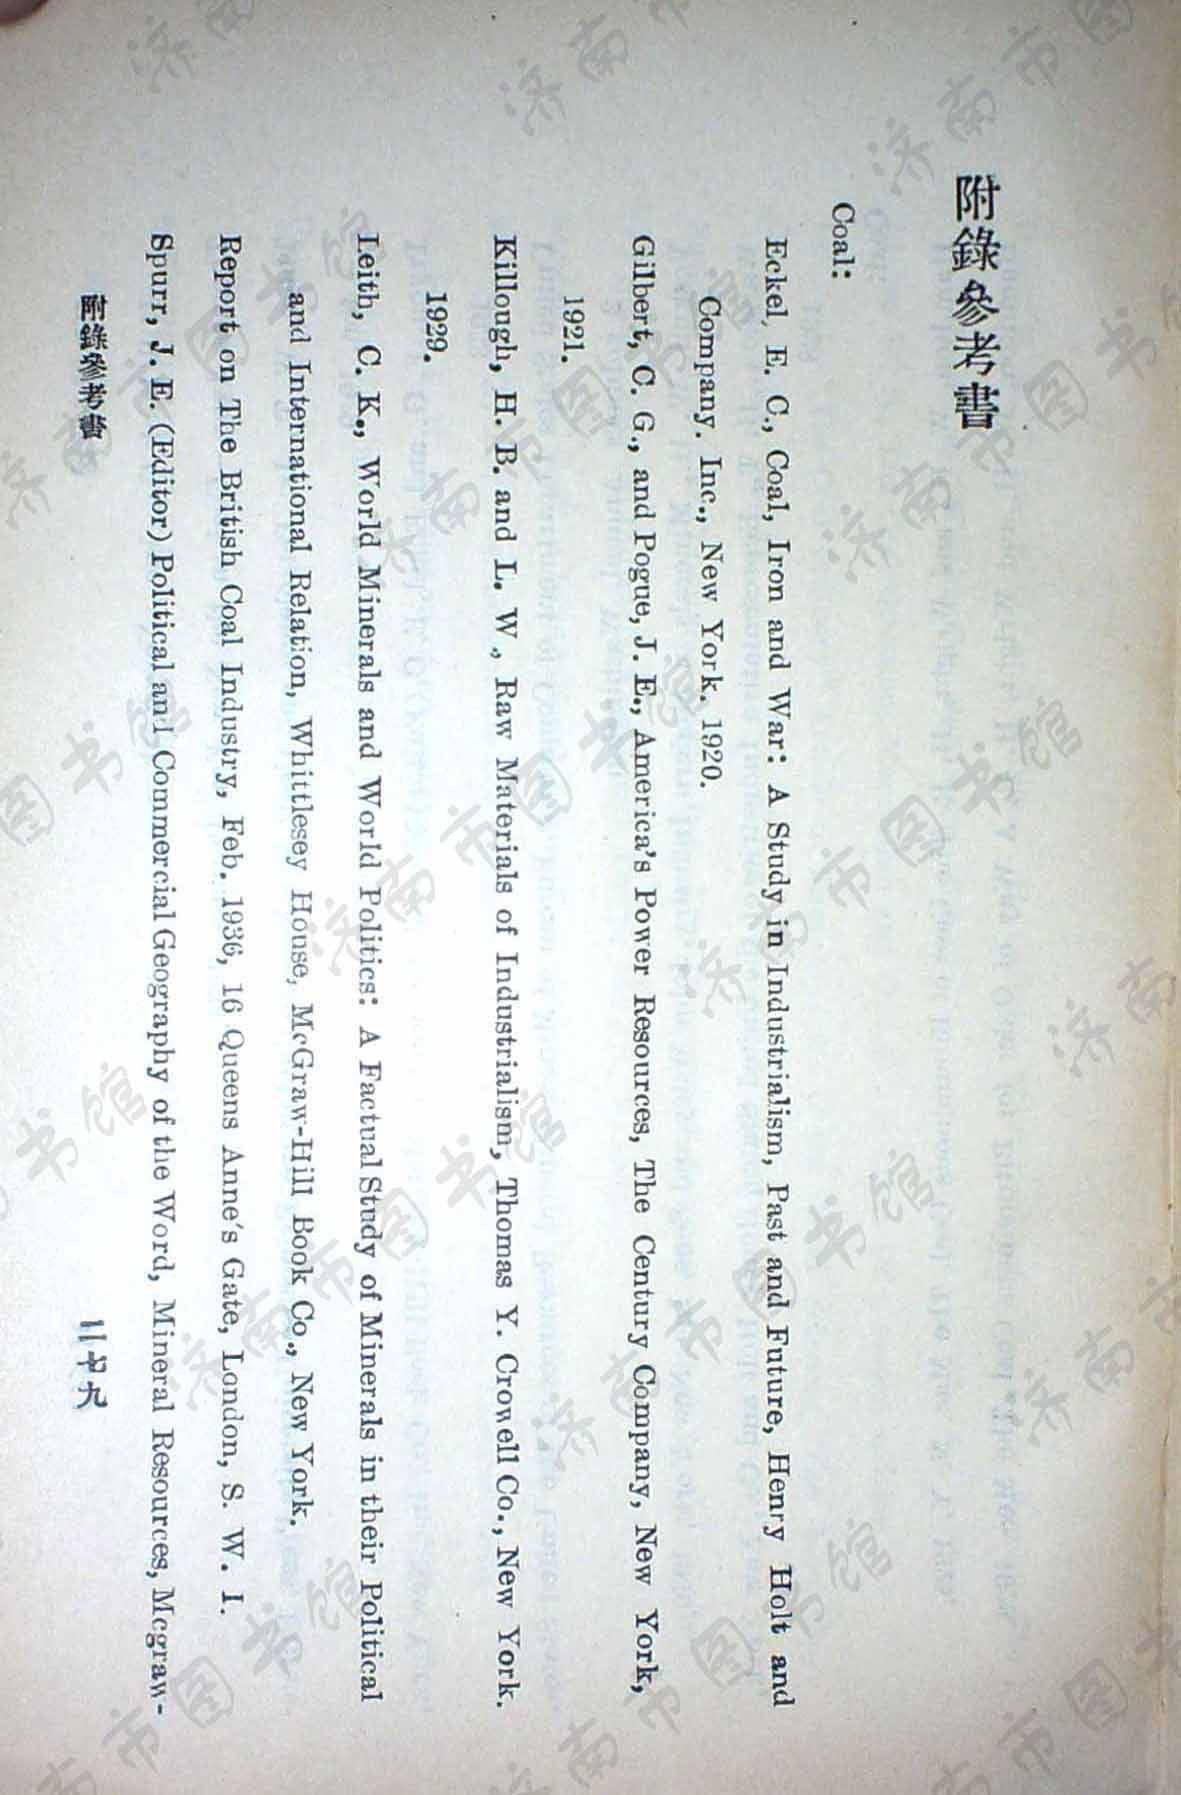 附錄參考書
Coal:
Eckel, E. C., Coal, Iron and War: A Study in Industrialism, Past and Future, Henry Holt and
Company. Inc., New York. 1920.
Gilbert, C. G., and Pogue, J. E., America's Power Resources, The Century Company, New York,
1921.
Killough, H. B. and L. W., Raw Materials of Industrialism, Thomas Y. Crowell Co., New York.
1929.
Leith, C. K., World Minerals and World Politics: A Factual Study of Minerals in their Political
and International Relation, Whittlesey House, McGraw-Hill Book Co., New York.
Report on The British Coal Industry, Feb. 1936, 16 Queens Anne's Gate, London, S. W. I.
Spurr, J. E. (Editor) Political and Commercial Geography of the Word, Mineral Resources, Mcgraw-
附錄參考書
济南市图书馆